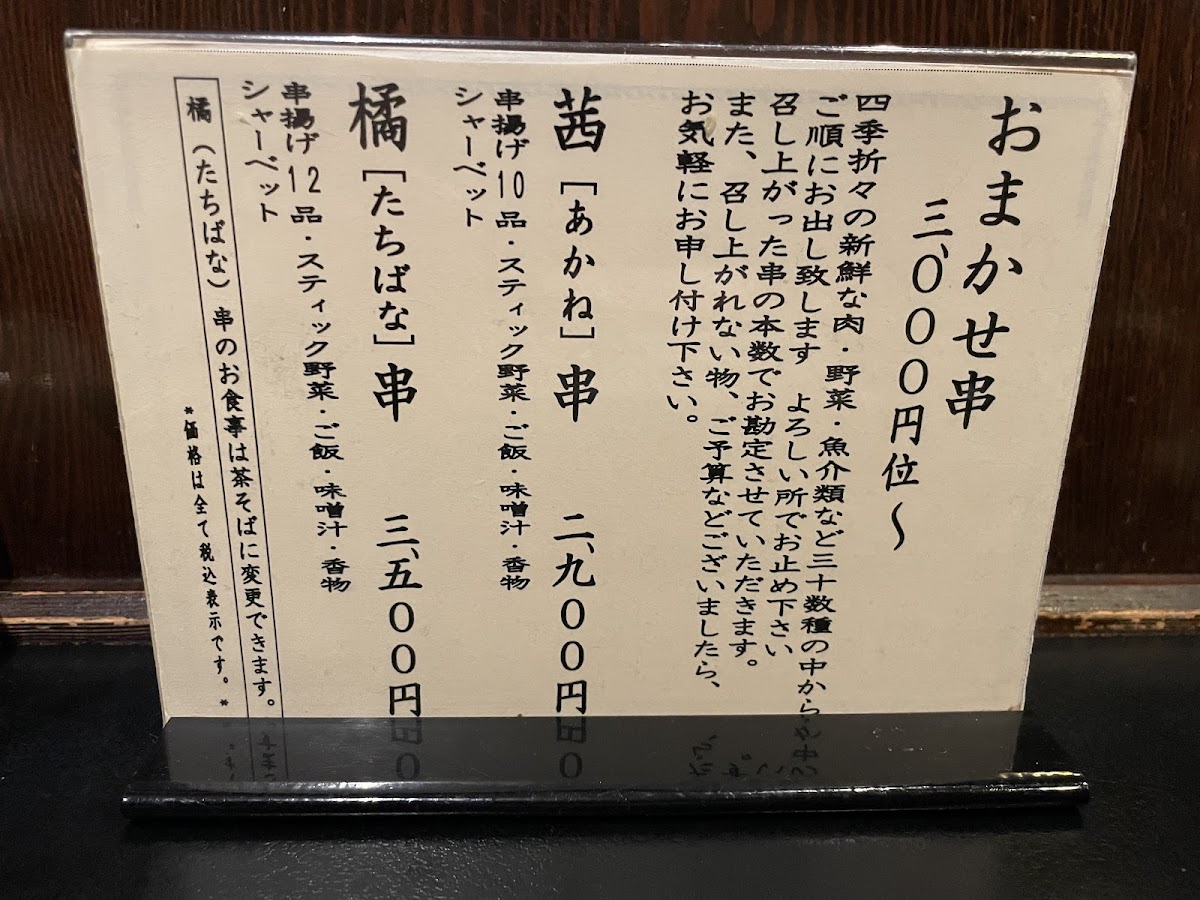 おまかせ串
三、〇〇〇円位～
四季折々の新鮮な肉・野菜・魚介類など三十数種の中から
ご順にお出し致します　よろしい所でお止め下さい
召し上がった串の本数でお勘定させていただきます。
また、召し上がれない物、ご予算などございましたら、
お気軽にお申し付け下さい。
茜［あかね］串　二、九〇〇円
串揚げ10品・スティック野菜・ご飯・味噌汁・香物
シャーベット
橘［たちばな］串　三、五〇〇円
串揚げ12品・スティック野菜・ご飯・味噌汁・香物
シャーベット
橘（たちばな）串のお食事は茶そばに変更できます。
*価格は全て税込表示です。*